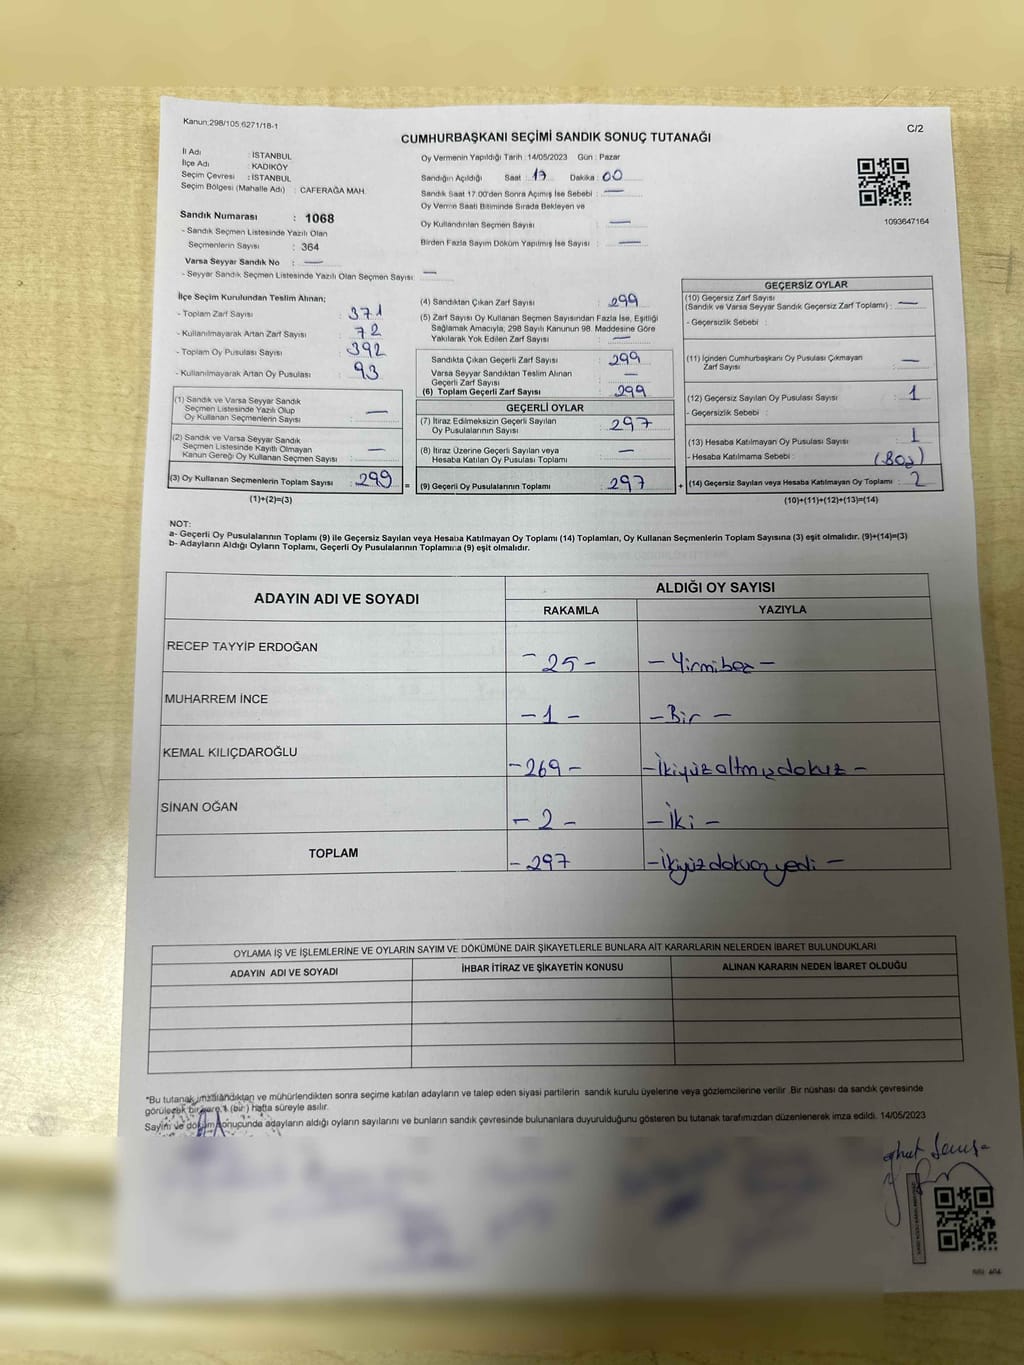 Kanun:298/105,6271/18-1
C/2
CUMHURBAŞKANI SEÇİMİ SANDIK SONUÇ TUTANAĞI
İl Adı : İSTANBUL
İlçe Adı : KADIKÖY
Seçim Çevresi : İSTANBUL
Seçim Bölgesi (Mahalle Adı) : CAFERAĞA MAH.
Sandık Numarası : 1068
- Sandık Seçmen Listesinde Yazılı Olan
Seçmenlerin Sayısı : 364
Varsa Seyyar Sandık No : —
- Seyyar Sandık Seçmen Listesinde Yazılı Olan Seçmen Sayısı: —
Oy Vermenin Yapıldığı Tarih :14/05/2023 Gün : Pazar
Sandığın Açıldığı Saat : 17 Dakika : 00
Sandık Saat 17.00'den Sonra Açımış İse Sebebi : —
Oy Verme Saati Bitiminde Sırada Bekleyen ve
Oy Kullandırılan Seçmen Sayısı : —
Birden Fazla Sayım Döküm Yapılmış İse Sayısı : —
1093647164
İlçe Seçim Kurulundan Teslim Alınan;
- Toplam Zarf Sayısı : 371
- Kullanılmayarak Artan Zarf Sayısı : 72
- Toplam Oy Pusulası Sayısı : 392
- Kullanılmayarak Artan Oy Pusulası : 93
(1) Sandık ve Varsa Seyyar Sandık
Seçmen Listesinde Yazılı Olup
Oy Kullanan Seçmenlerin Sayısı : —
(2) Sandık ve Varsa Seyyar Sandık
Seçmen Listesinde Kayıtlı Olmayan
Kanun Gereği Oy Kullanan Seçmen Sayısı : —
(3) Oy Kullanan Seçmenlerin Toplam Sayısı : 299
(1)+(2)=(3)
(4) Sandıktan Çıkan Zarf Sayısı : 299
(5) Zarf Sayısı Oy Kullanan Seçmen Sayısından Fazla İse, Eşitliği
Sağlamak Amacıyla, 298 Sayılı Kanunun 98. Maddesine Göre
Yakılarak Yok Edilen Zarf Sayısı : —
Sandıkta Çıkan Geçerli Zarf Sayısı : 299
Varsa Seyyar Sandıktan Teslim Alınan
Geçerli Zarf Sayısı : —
(6) Toplam Geçerli Zarf Sayısı : 299
GEÇERLİ OYLAR
(7) İtiraz Edilmeksizin Geçerli Sayılan
Oy Pusulalarının Sayısı : 297
(8) İtiraz Üzerine Geçerli Sayılan veya
Hesaba Katılan Oy Pusulası Toplamı : —
= (9) Geçerli Oy Pusulalarının Toplamı : 297
GEÇERSİZ OYLAR
(10) Geçersiz Zarf Sayısı
(Sandık ve Varsa Seyyar Sandık Geçersiz Zarf Toplamı) : —
- Geçersizlik Sebebi :
(11) İçinden Cumhurbaşkanı Oy Pusulası Çıkmayan
Zarf Sayısı : —
(12) Geçersiz Sayılan Oy Pusulası Sayısı : 1
- Geçersizlik Sebebi :
(13) Hesaba Katılmayan Oy Pusulası Sayısı : 1
- Hesaba Katılmama Sebebi : (Boş)
+ (14) Geçersiz Sayılan veya Hesaba Katılmayan Oy Toplamı : 2
(10)+(11)+(12)+(13)=(14)
NOT:
a- Geçerli Oy Pusulalarının Toplamı (9) ile Geçersiz Sayılan veya Hesaba Katılmayan Oy Toplamı (14) Toplamları, Oy Kullanan Seçmenlerin Toplam Sayısına (3) eşit olmalıdır. (9)+(14)=(3)
b- Adayların Aldığı Oyların Toplamı, Geçerli Oy Pusulalarının Toplamına (9) eşit olmalıdır.
ADAYIN ADI VE SOYADI
ALDIĞI OY SAYISI
RAKAMLA YAZIYLA
RECEP TAYYİP ERDOĞAN - 25 - - Yirmibeş -
MUHARREM İNCE - 1 - - Bir -
KEMAL KILIÇDAROĞLU - 269 - - İkiyüzaltmışdokuz -
SİNAN OĞAN - 2 - - İki -
TOPLAM - 297 - İkiyüzdoksanyedi -
OYLAMA İŞ VE İŞLEMLERİNE VE OYLARIN SAYIM VE DÖKÜMÜNE DAİR ŞİKAYETLERLE BUNLARA AİT KARARLARIN NELERDEN İBARET BULUNDUKLARI
ADAYIN ADI VE SOYADI İHBAR İTİRAZ VE ŞİKAYETİN KONUSU ALINAN KARARIN NEDEN İBARET OLDUĞU
"Bu tutanak imzalandıktan ve mühürlendikten sonra seçime katılan adayların ve talep eden siyasi partilerin sandık kurulu üyelerine veya gözlemcilerine verilir .Bir nüshası da sandık çevresinde
görülecek bir yere 1 (bir ) hafta süreyle asılır.
Sayım ve döküm sonucunda adayların aldığı oyların sayılarını ve bunların sandık çevresinde bulunanlara duyurulduğunu gösteren bu tutanak tarafımızdan düzenlenerek imza edildi. 14/05/2023